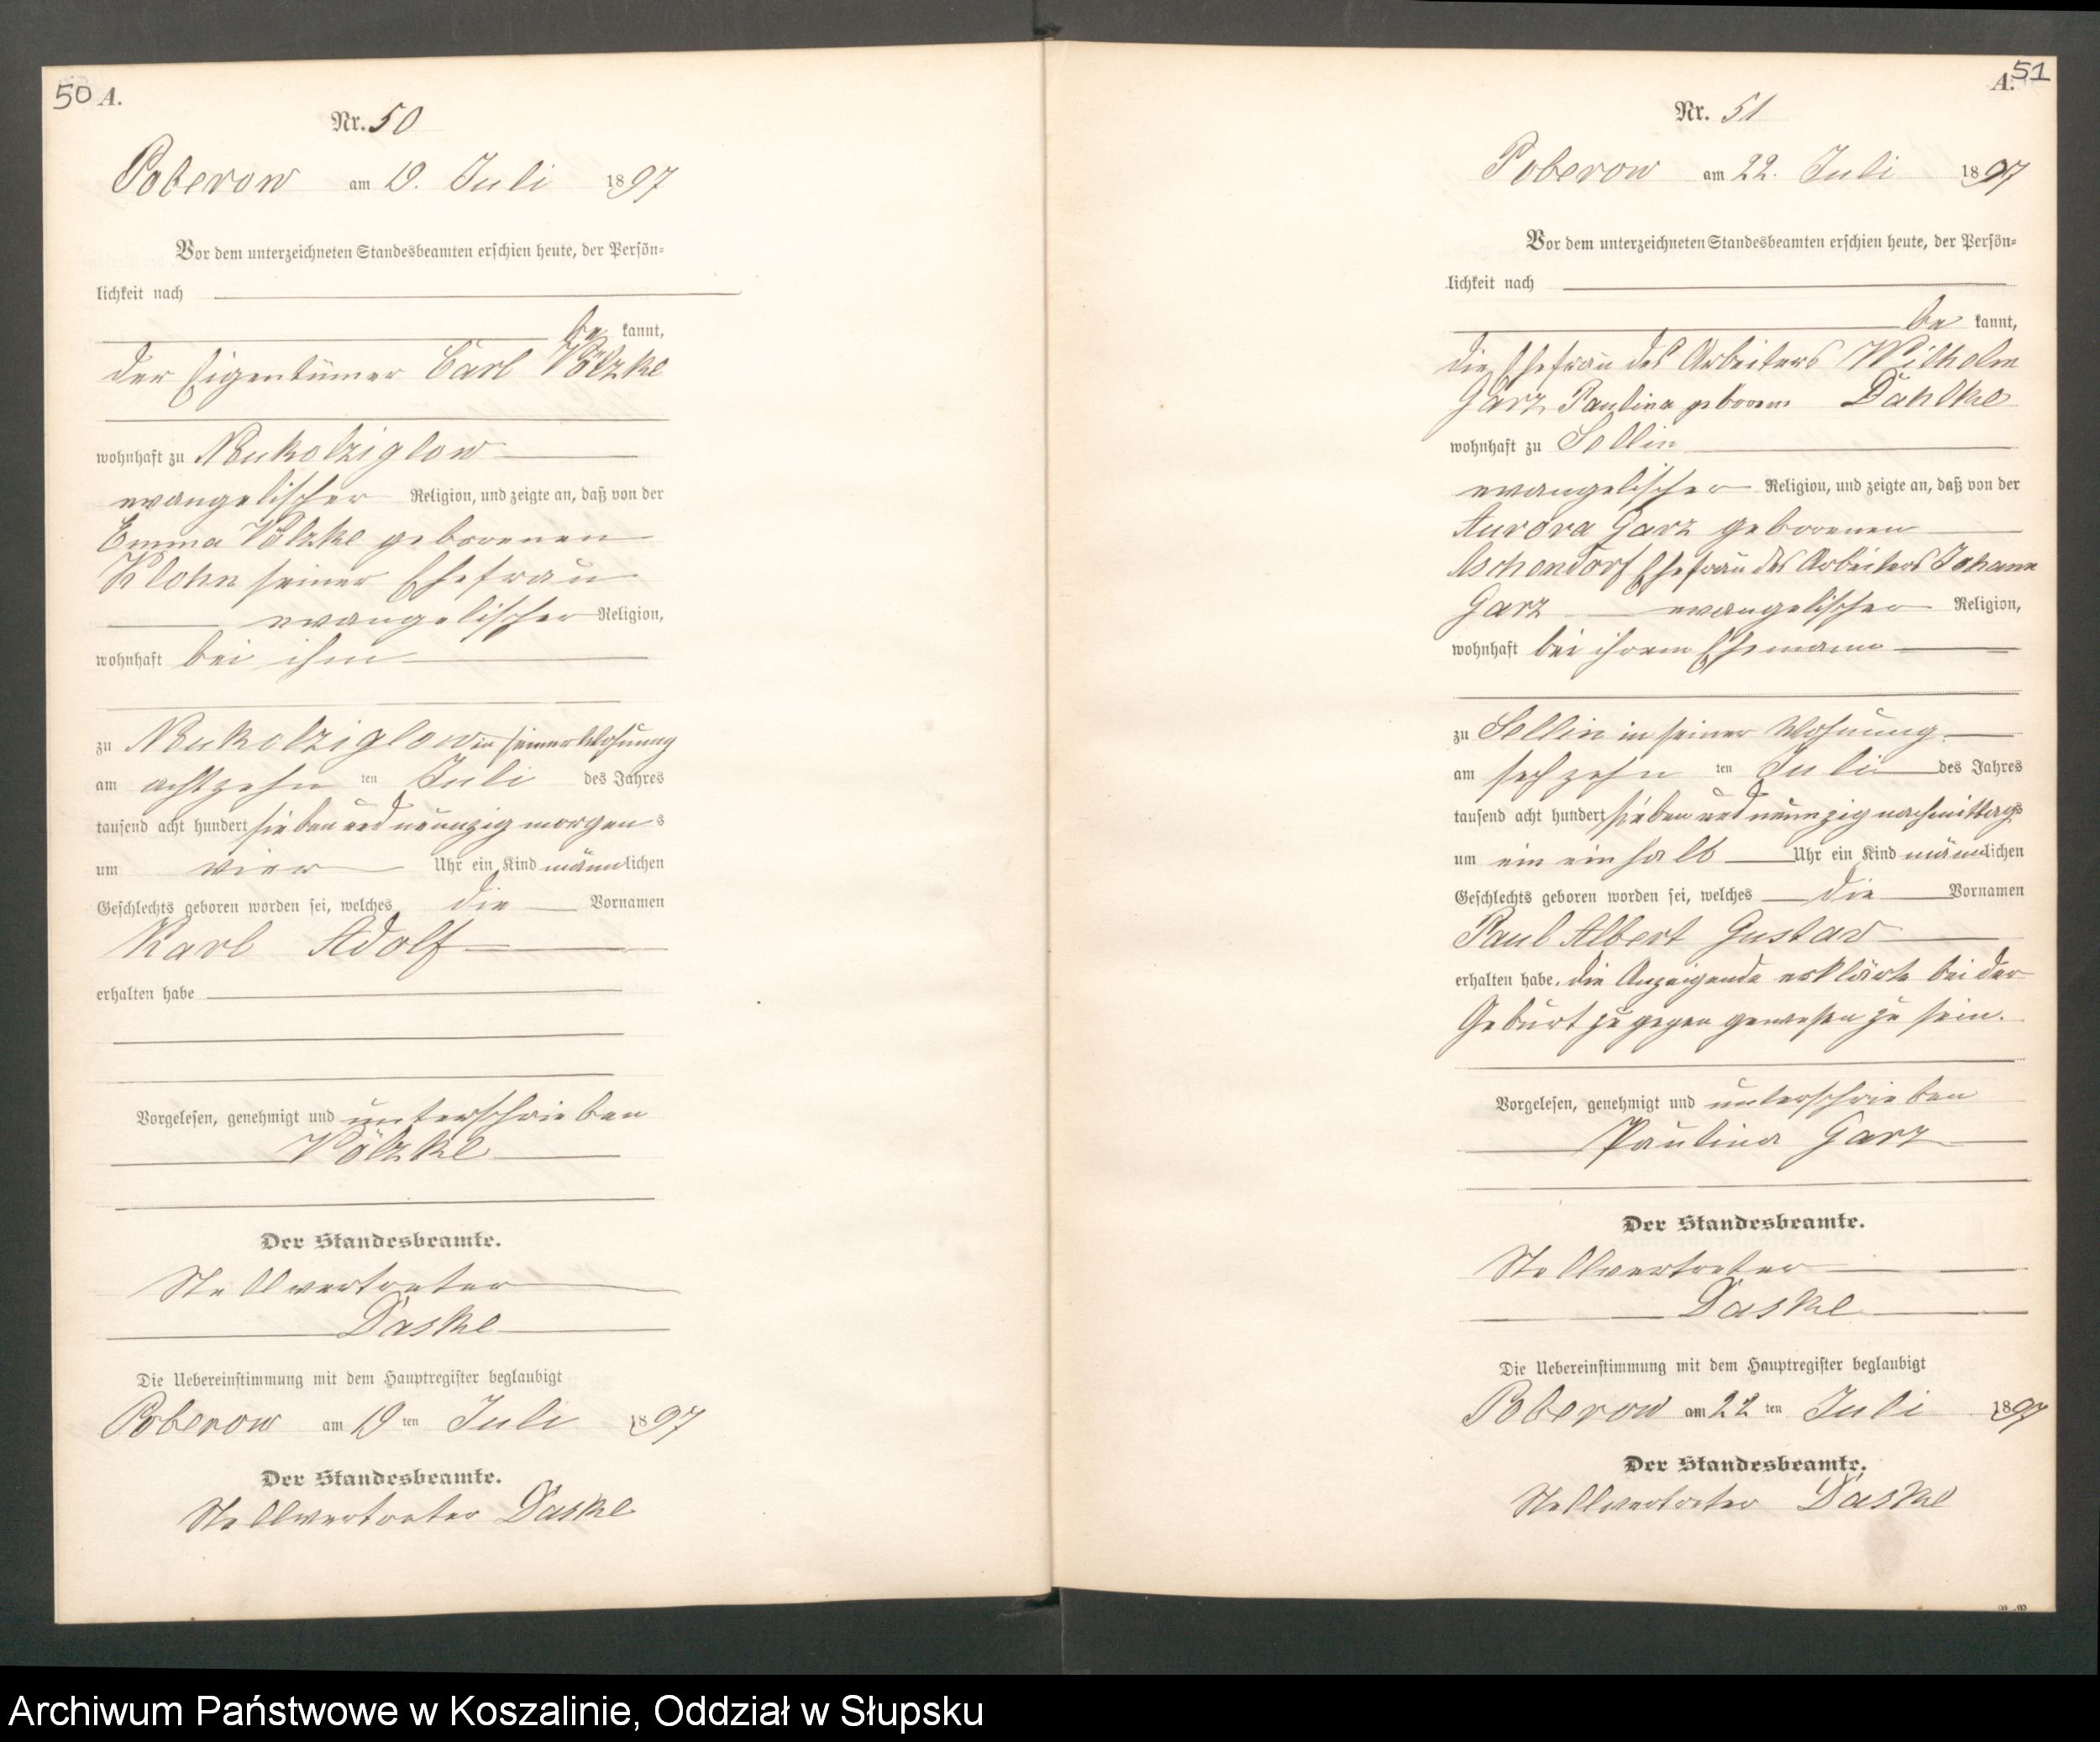 50 A.
Nr. 50
Poberow am 19. Juli 1897
Vor dem unterzeichneten Standesbeamten erschien heute, der Persön-
lichkeit nach
be kannt,
der Eigentümer Carl Völzke
wohnhaft zu Neukolziglow
evangelischer Religion, und zeigte an, daß von der
Emma Völzke geborenen
Klohn seiner Ehefrau
evangelischer Religion,
wohnhaft bei ihm
zu Neukolziglow in seiner Wohnung
am achtzehn ten Juli des Jahres
tausend acht hundert sieben und neunzig morgens
um vier Uhr ein Kind männlichen
Geschlechts geboren worden sei, welches die Vornamen
Karl Adolf
erhalten habe
Vorgelesen, genehmigt und unterschrieben
Völzke
Der Standesbeamte.
Stellvertreter
Daske
Die Uebereinstimmung mit dem Hauptregister beglaubigt
Poberow am 19 ten Juli 1897
Der Standesbeamte.
Stellvertreter Daske
A. 51
Nr. 51
Poberow am 22. Juli 1897
Vor dem unterzeichneten Standesbeamten erschien heute, der Persön-
lichkeit nach
be kannt,
die Ehefrau des Arbeiters Wilhelm
Garz, Pauline geborene Dahlke
wohnhaft zu Sellin
evangelischer Religion, und zeigte an, daß von der
Aurora Garz geborenen
Aschendorf Ehefrau des Arbeiters Johann
Garz evangelischer Religion,
wohnhaft bei ihrem Ehemann
zu Sellin in seiner Wohnung
am sechzehn ten Juli des Jahres
tausend acht hundert sieben und neunzig nachmittags
um ein einhalb Uhr ein Kind männlichen
Geschlechts geboren worden sei, welches die Vornamen
Paul Albert Gustav
erhalten habe. die Anzeigende erklärte bei der
Geburt zugegen gewesen zu sein.
Vorgelesen, genehmigt und unterschrieben
Paulina Garz
Der Standesbeamte.
Stellvertreter
Daske
Die Uebereinstimmung mit dem Hauptregister beglaubigt
Poberow am 22 ten Juli 1897
Der Standesbeamte.
Stellvertreter Daske
Archiwum Państwowe w Koszalinie, Oddział w Słupsku